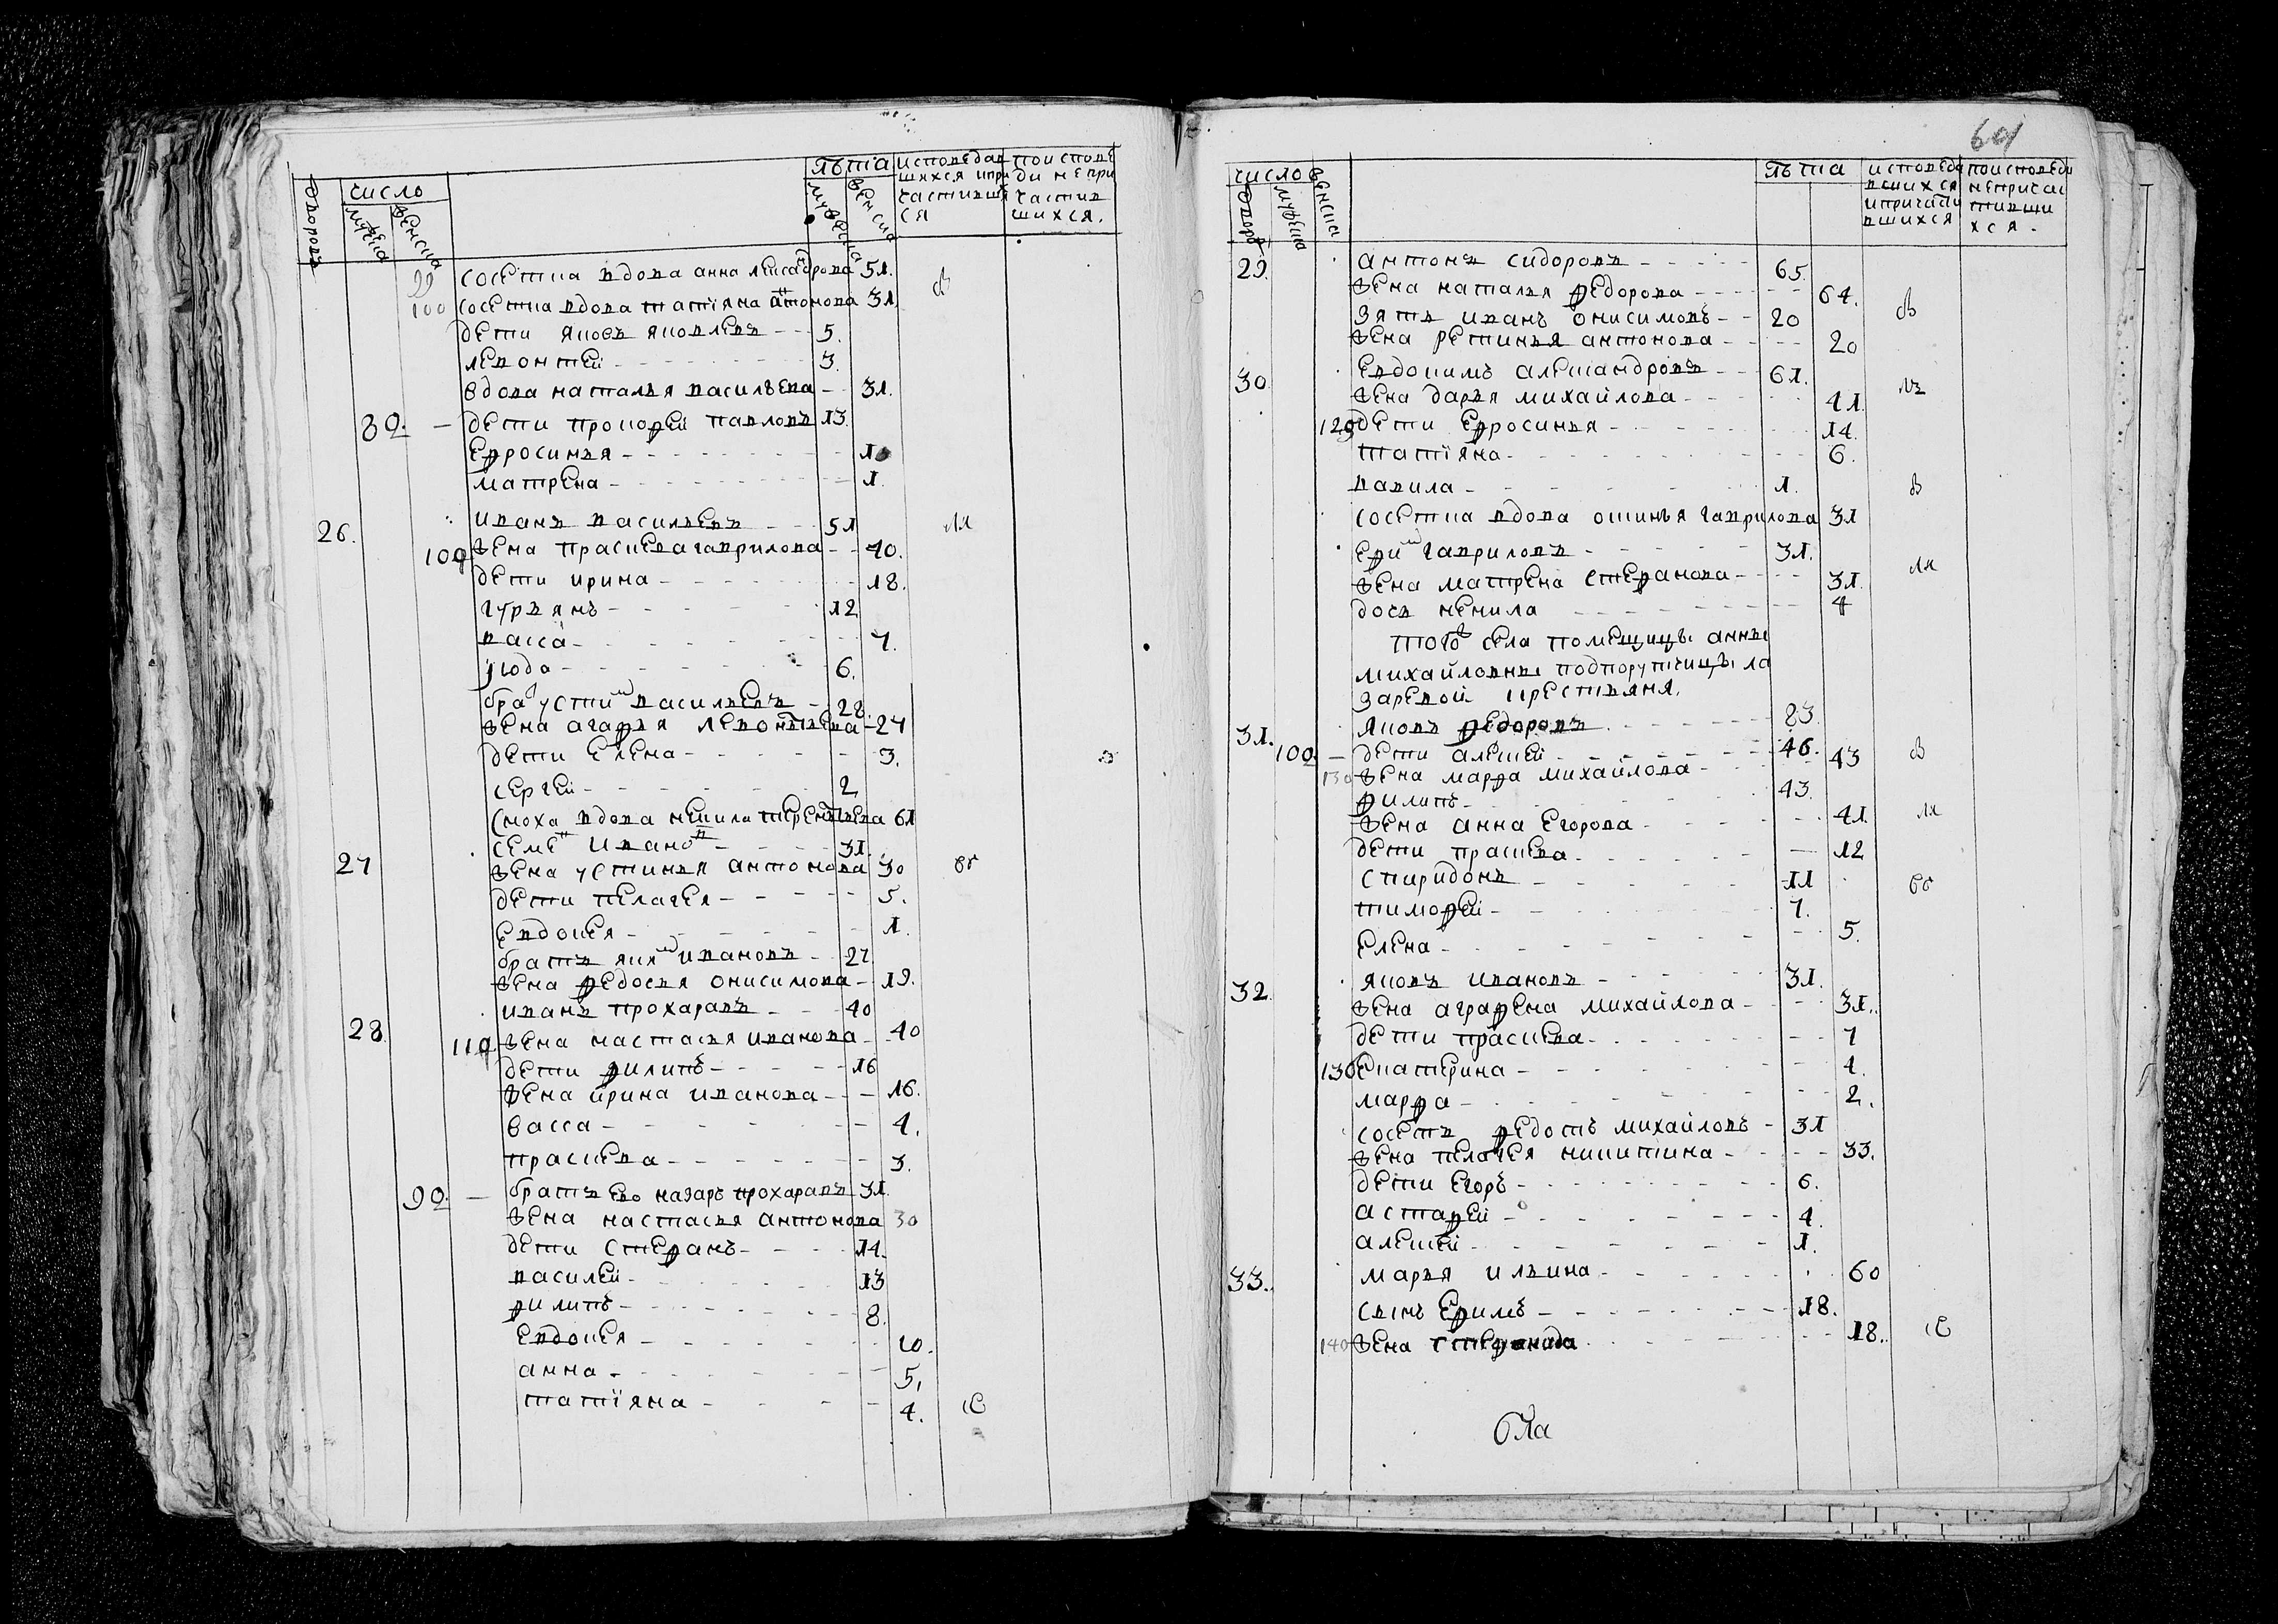 дворовъ
число
мужеска
женска
лѣта
мужеска
женска
исповедав
шихся и при
частивши
ся
по испове
ди непри
частив
шихся.
99 соседка вдова анна алексадрова 51.
100 соседка вдова татїяна атонова 31
дети яковъ яковлевъ 5.
левонтей 3.
вдова наталья васильева 31.
82. дети прокофей павловъ 13.
ефросинья
матрена 1.
26. иванъ васильевъ 51
жена прасковя гаврилова 40.
дети ирина 18.
гурьянъ 12
васса 7.
июда 6.
бра устинъ васильевъ 28.
жена агафья левонтьева 27
дети елена 3.
сергей 2
сноха вдова ненила терентьева 61
27 семе ивано 31.
жена устинья антонова 30
дети пелагея 5.
евдокея 1.
братъ яки ивановъ 27
жена федосья онисимова 19.
28. иванъ прохаравъ 40
жена настасья иванова 40
дети филипъ 16
жена ирина иванова 16.
васса 4.
прасковя 3.
92. братъ ево назаръ прохаравъ 31.
жена настасья антонова 30
дети стефанъ 14.
василей 13
филипъ 8.
евдокея 10.
анна 5,
татїяна 4.
число
женска
мужеска
лѣта
исповеда
вшихся
и причасти
вшихся
по исповеди
непричас
тивши
хся.
29. антонъ сидоровъ 65.
жена наталья федорова 64.
зять иванъ онисимовъ 20
жена фетинья антонова 20
30. евдокимъ александровъ 61.
жена дарья михайлова 41.
дети ефросинья 14.
татїяна 6.
вавила 1.
соседка вдова оксинья гаврилова 31
ефи гавриловъ 31.
жена матрена стефанова 31.
дочь ненила 4
тогожъ села помещицы анны
михайловны подпорутчицы ла
заревой крестьяня.
31. яковъ федоровъ 83.
102. дети алексей 46.
130 жена марфа михайлова 43
филипъ 43.
жена анна егорова 41.
дети прасковя 12
спиридонъ 11
тимофей 7.
елена 5.
32. яковъ ивановъ 31.
жена аграфена михайлова 31.
дети прасковя 7
екатерина 4.
марфа 2.
соседъ федотъ михайловъ 31
жена пелагея никитина 33.
дети егоръ 6.
астафей 4.
алексей 1.
33. марья ильина 60
сынъ ефимъ 18.
140 жена стефанида 18.